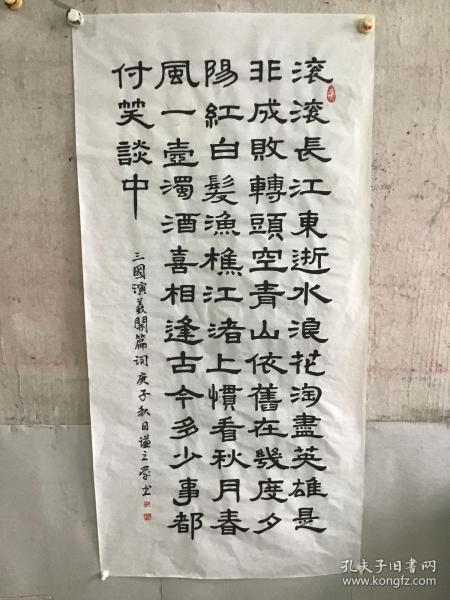 滚滚長江東逝水浪花淘盡英雄是
非成敗轉頭空青山依舊在幾度夕
陽紅白髮漁樵江渚上慣看秋月春
風一壺濁酒喜相逢古今多少事都
付笑談中
三國演義開篇词庚子秋日之
孔夫子旧书网
www.kongfz.com